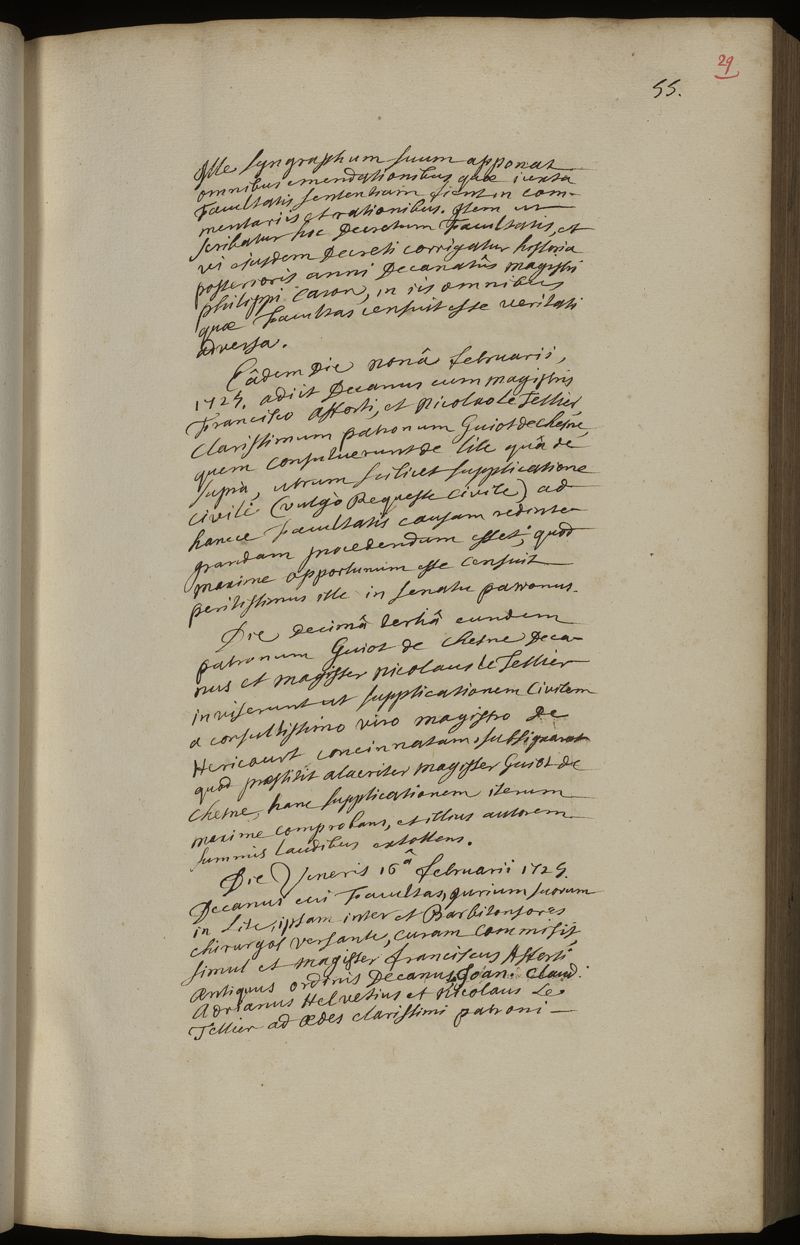 29
55.
Ille syngraphum suum apponat
omnibus emendationibus quæ iuxta
Facultatis sententiam fient in com-
mentariis et rationibus. Item ut
scribatur hoc Decretum Facultatis, et
vi ejusdem Decreti corrigatur historia
posterioris anni Decanatûs magistri
philippi Caron, in iis omnibus
quæ Facultas censuit esse veritati
adversa.
Eâdem Die nonâ februarii,
1725. adiit Decanus cum magistris
Francisco Afforti, et Nicolao le Tellier
Clarissimum patronum Guiot de chesne,
quem consuluerunt de lite quâ de
supra, utrum scilicet supplicatione
civili (vulgò Requeste Civile) ad
hancce Facultatis causam redinte-
grandam procedendum esset; quod
maxime opportunum esse censuit
peritissimus ille in senatu patronus.
Die decimâ tertiâ eundem
patronum Guiot de chesne Deca-
nus et magister Nicolaus le Tellier
inviserunt ut supplicationem Civilem
a consultissimo viro magistro de
Hericourt concinnatam, subsignaret
quod præstitit alacriter magister Guiot de
chesne, hanc supplicationem iterum
maxime comprobans, et illius autorem
summis laudibus extollens.
Die Veneris 16â februarii 1725.
Decanus cui Facultas, jurium suorum
in Lite, ipsam inter et Barbitonsores
chirurgos versante, curam commisit,
simul et magister franciscus Afforti
Antiquus ordinis Decanus, Joan. Claud.
Adrianus Helvetius et Nicolaus Le
Tellier ad ædes clarissimi patroni